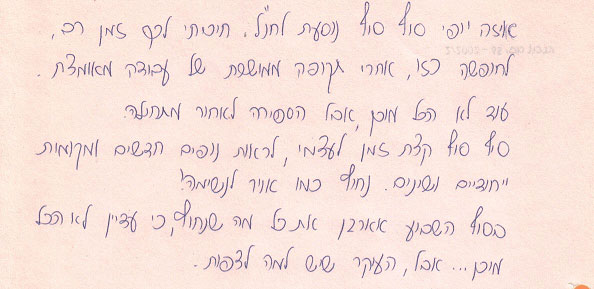 איזה יופי סוף סוף נוסעת לחו"ל. חיכיתי לכך זמן רב,
לחופשה כזו, אחרי תקופה ממושכת של עבודה מאומצת.
עוד לא הכל מוכן, אבל הספירה לאחור מתחילה.
סוף סוף קצת זמן לעצמי, לראות נופים חדשים ומקומות
ייחודיים ושינים. נחוץ כמו אויר לנשימה!
בסוף השבוע אארגן את כל מה שנחוץ, כי עדיין לא הכל
מוכן... אבל, העיקר שיש למה לצפות.